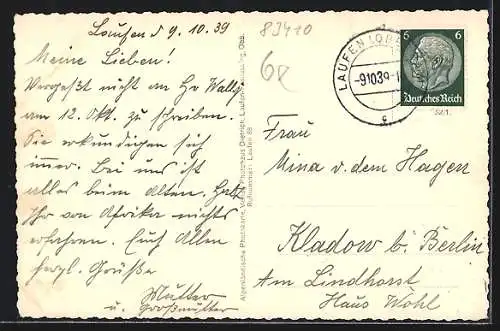 Laufen d 9. 10. 39
Meine Lieben!
Vergeßt nicht an Hr Wally
am 12. Okt. zu schreiben.
Sie erkundigen sich
immer. Bei uns ist
alles beim Alten. Habt
Ihr von Afrika nichts
erfahren. Euch Allen
herzl. Grüße
Mutter
u. Großmutter
83410
6
LAUFEN (OBB
-9.10.39.-1
c
6 6
Deutsches Reich
Frau
Mina v. dem Hagen
Kladow b. Berlin
Am Lindhorst
Haus Wohl